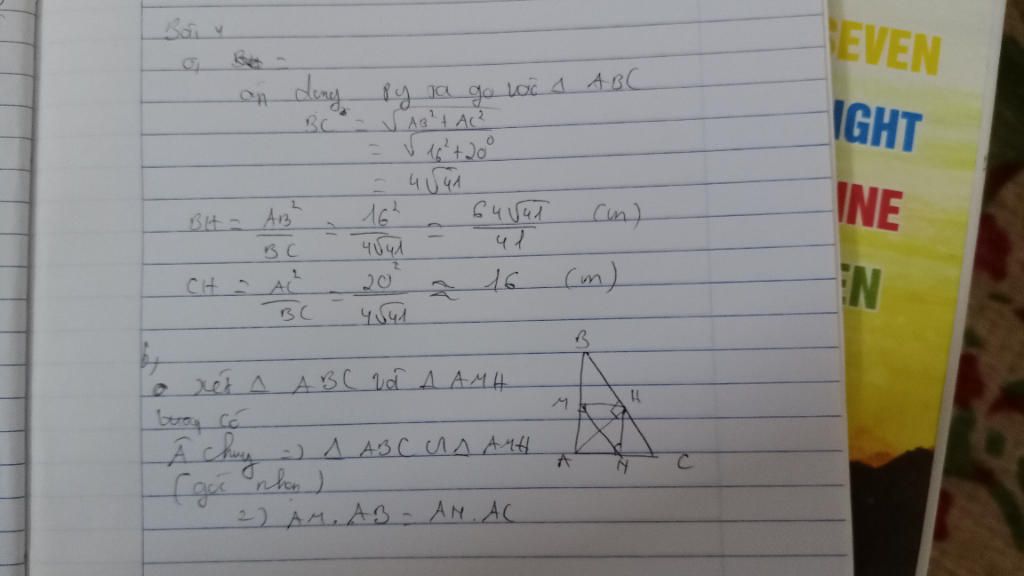 Bài 4
a,
áp dụng Py ta go với Δ ABC
BC = √AB² + AC²
= √16² + 20⁰
= 4√41
BH = AB²/BC = 16²/4√41 = 64√41/41 (m)
CH = AC²/BC = 20²/4√41 ≈ 16 (m)
b,
xét Δ ABC và Δ AMH
có
 chung => Δ ABC ∽ Δ AMH
(góc nhọn)
=) AM.AB = AN.AC
B
M H
A N C
SEVEN
IGHT
INE
EN